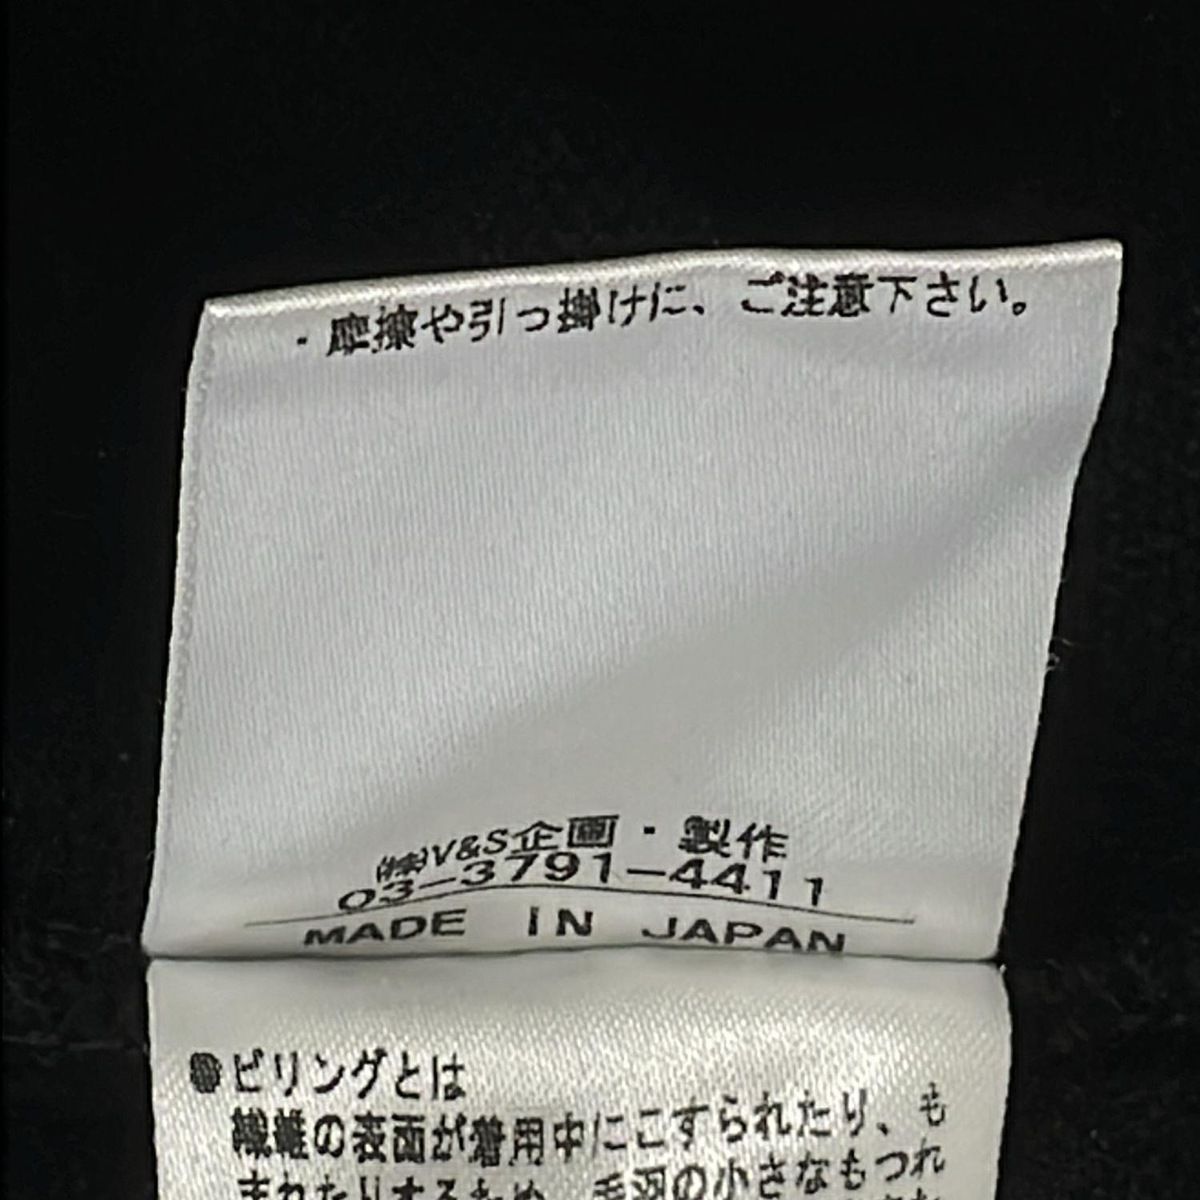 ・摩擦や引っ掛けに、ご注意下さい。
(株)V&S企画・製作
03-3791-4411
MADE IN JAPAN
●ピリングとは
繊維の表面が着用中にこすられたり、も
まれたりするため、毛羽の小さなもつれ